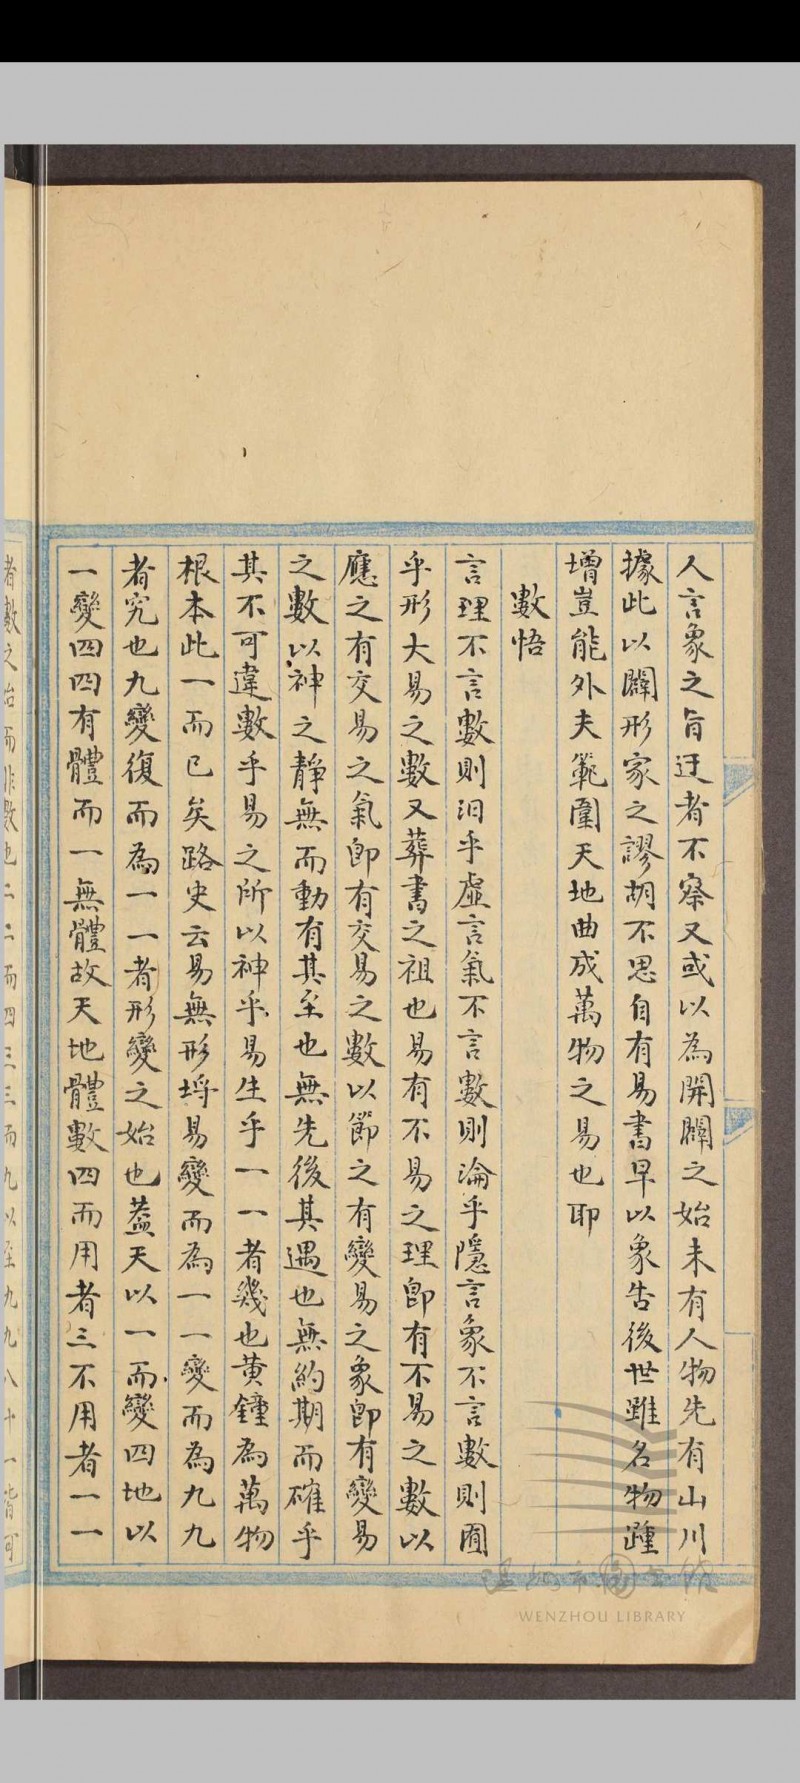 人言象之旨迂者不察又或以為開闢之始未有人物先有山川
據此以闢形家之謬胡不思自有易書早以象告後世雖名物踵
增豈能外夫範圍天地曲成萬物之易也耶
數悟
言理不言數則汨乎虛言氣不言數則淪乎隱言象不言數則囿
乎形大易之數又葬書之祖也易有不易之理即有不易之數以
應之有交易之氣即有交易之數以節之有變易之象即有變易
之數以神之靜無而動有其至也無先後其遇也無約期而確乎
其不可違數乎易之所以神乎易生乎一一者幾也黃鐘為萬物
根本此一而已矣路史云易無形埒易變而為一一變而為九九
者究也九變復而為一一者形變之始也蓋天以一而變四地以
一變四四有體而一無體故天地體數四而用者三不用者一一
者數之始而非數也二二而四三三而九以至九九八十一皆可
溫州市圖書館
WENZHOU LIBRARY